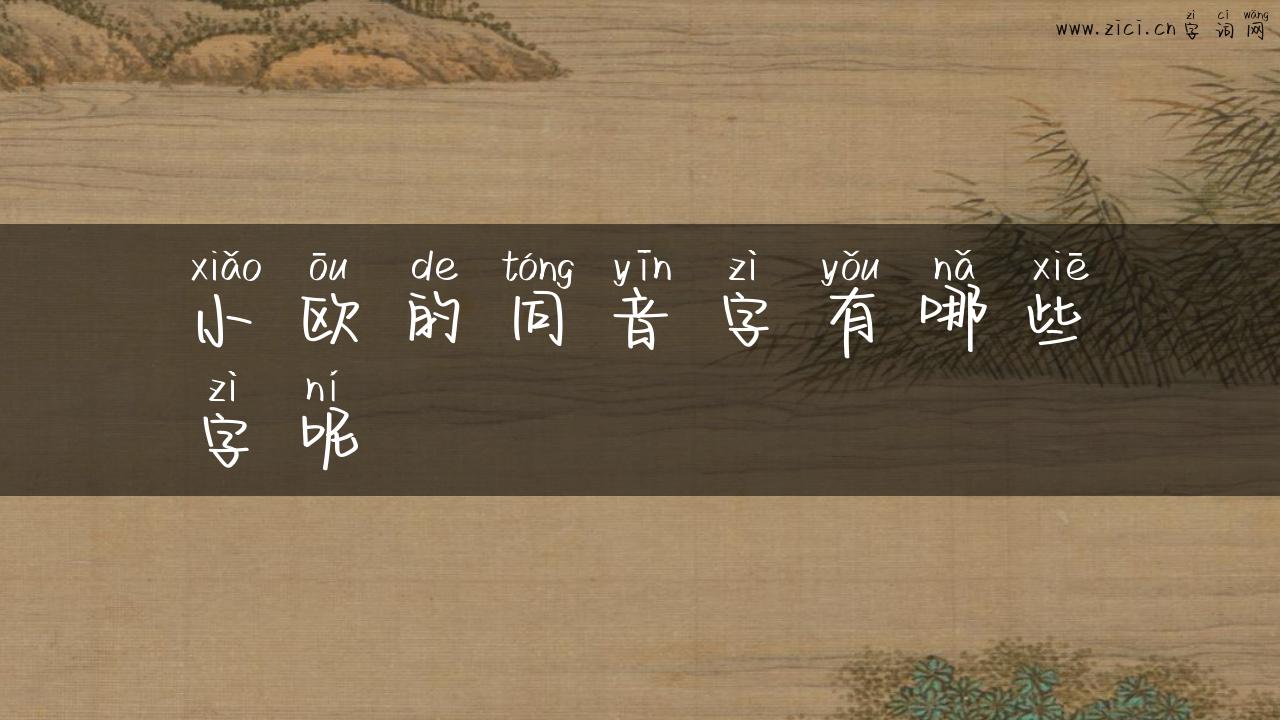 zì cí wǎng
www.zici.cn 字 词 网
xiǎo ōu de tóng yīn zì yǒu nǎ xiē
小 欧 的 同 音 字 有 哪 些
zì ní
字 呢